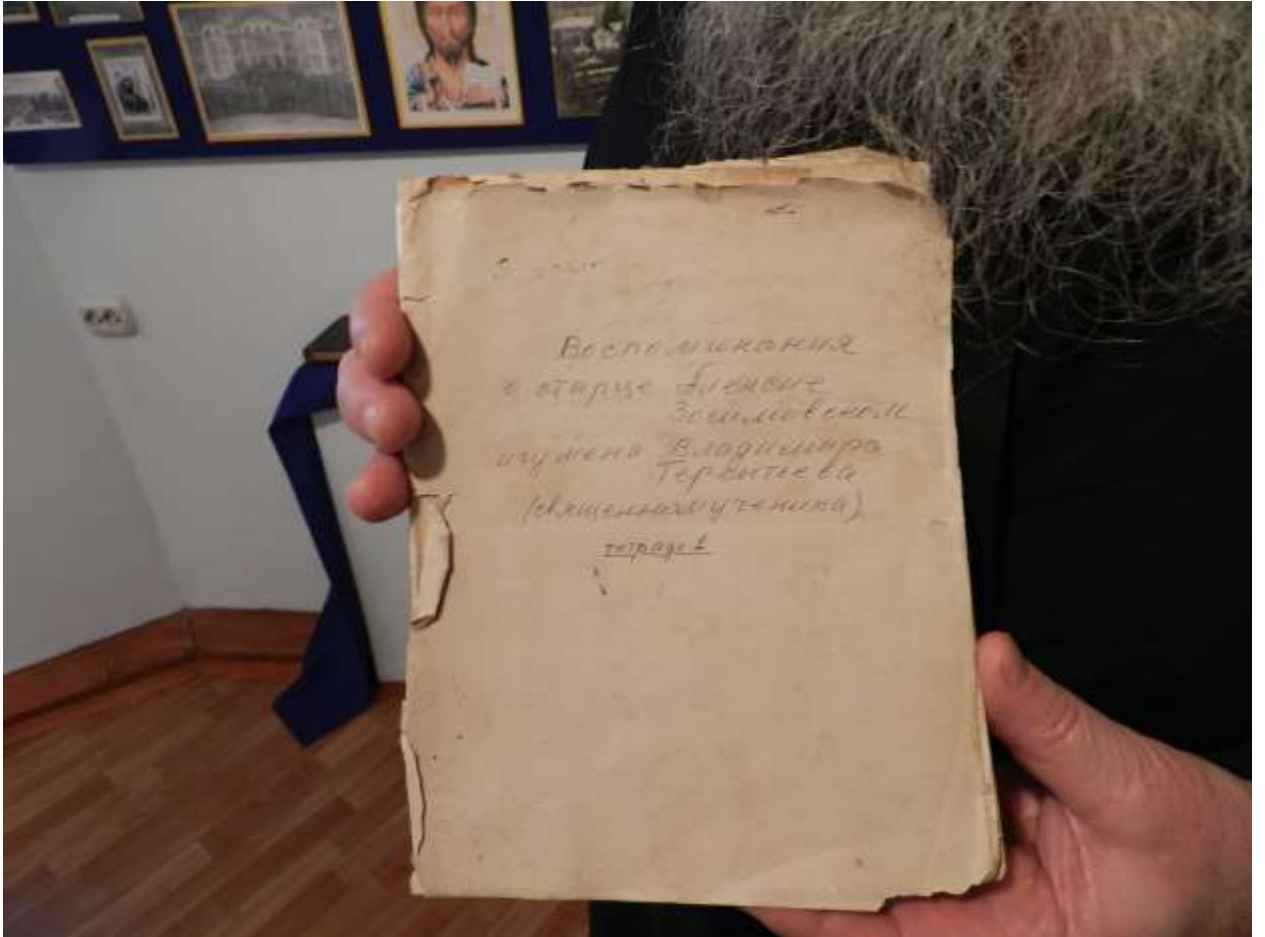 Воспоминания
о старце Алексие
Зосимовском
игумена Владимира
Терентьева
(священномученика)
тетрадь